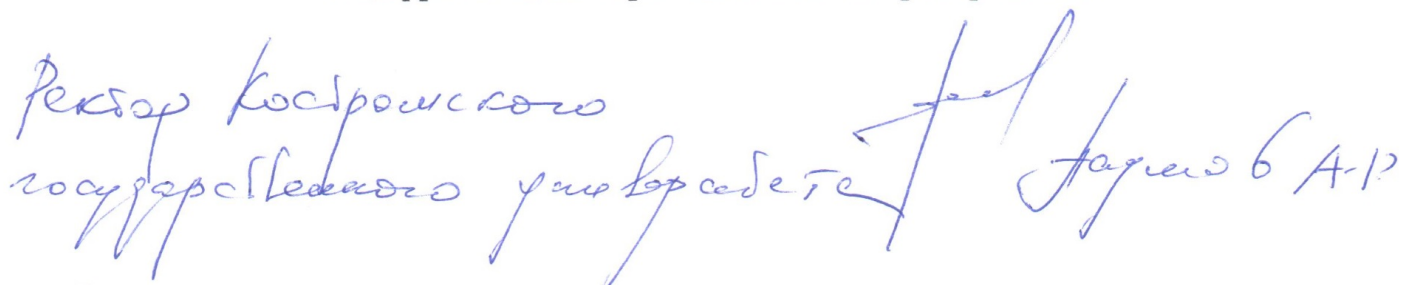 Ректор Костромского
государственного университета Наумов А.Р